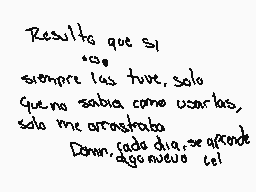 Resulta que si
...
siempre las tuve, solo
que no sabia como usarlas,
solo me arrastraba
Damn, cada dia, se aprende
algo nuevo lel